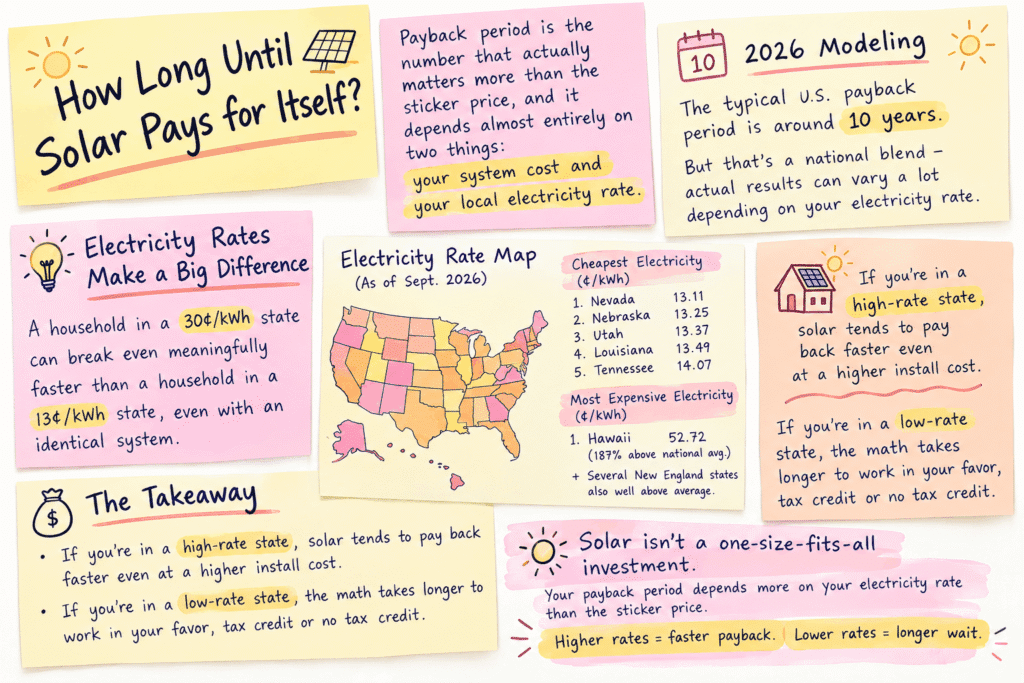 How Long Until
Solar Pays for Itself?
Payback period is the
number that actually
matters more than the
sticker price, and it
depends almost entirely on
two things:
your system cost and
your local electricity rate.
10
2026 Modeling
The typical U.S. payback
period is around 10 years.
But that's a national blend –
actual results can vary a lot
depending on your electricity rate.
Electricity Rates
Make a Big Difference
A household in a 30¢/kWh state
can break even meaningfully
faster than a household in a
13¢/kWh state, even with an
identical system.
Electricity Rate Map
(As of Sept. 2026)
Cheapest Electricity
(¢/kWh)
1. Nevada 13.11
2. Nebraska 13.25
3. Utah 13.37
4. Louisiana 13.49
5. Tennessee 14.07
Most Expensive Electricity
(¢/kWh)
1. Hawaii 52.72
(187% above national avg.)
+ Several New England states
also well above average.
If you're in a
high-rate state,
solar tends to pay
back faster even
at a higher install cost.
If you're in a low-rate
state, the math takes
longer to work in your favor,
tax credit or no tax credit.
$
The Takeaway
• If you're in a high-rate state, solar tends to pay back
faster even at a higher install cost.
• If you're in a low-rate state, the math takes longer to
work in your favor, tax credit or no tax credit.
Solar isn't a one-size-fits-all
investment.
Your payback period depends more on your electricity rate
than the sticker price.
Higher rates = faster payback. Lower rates = longer wait.